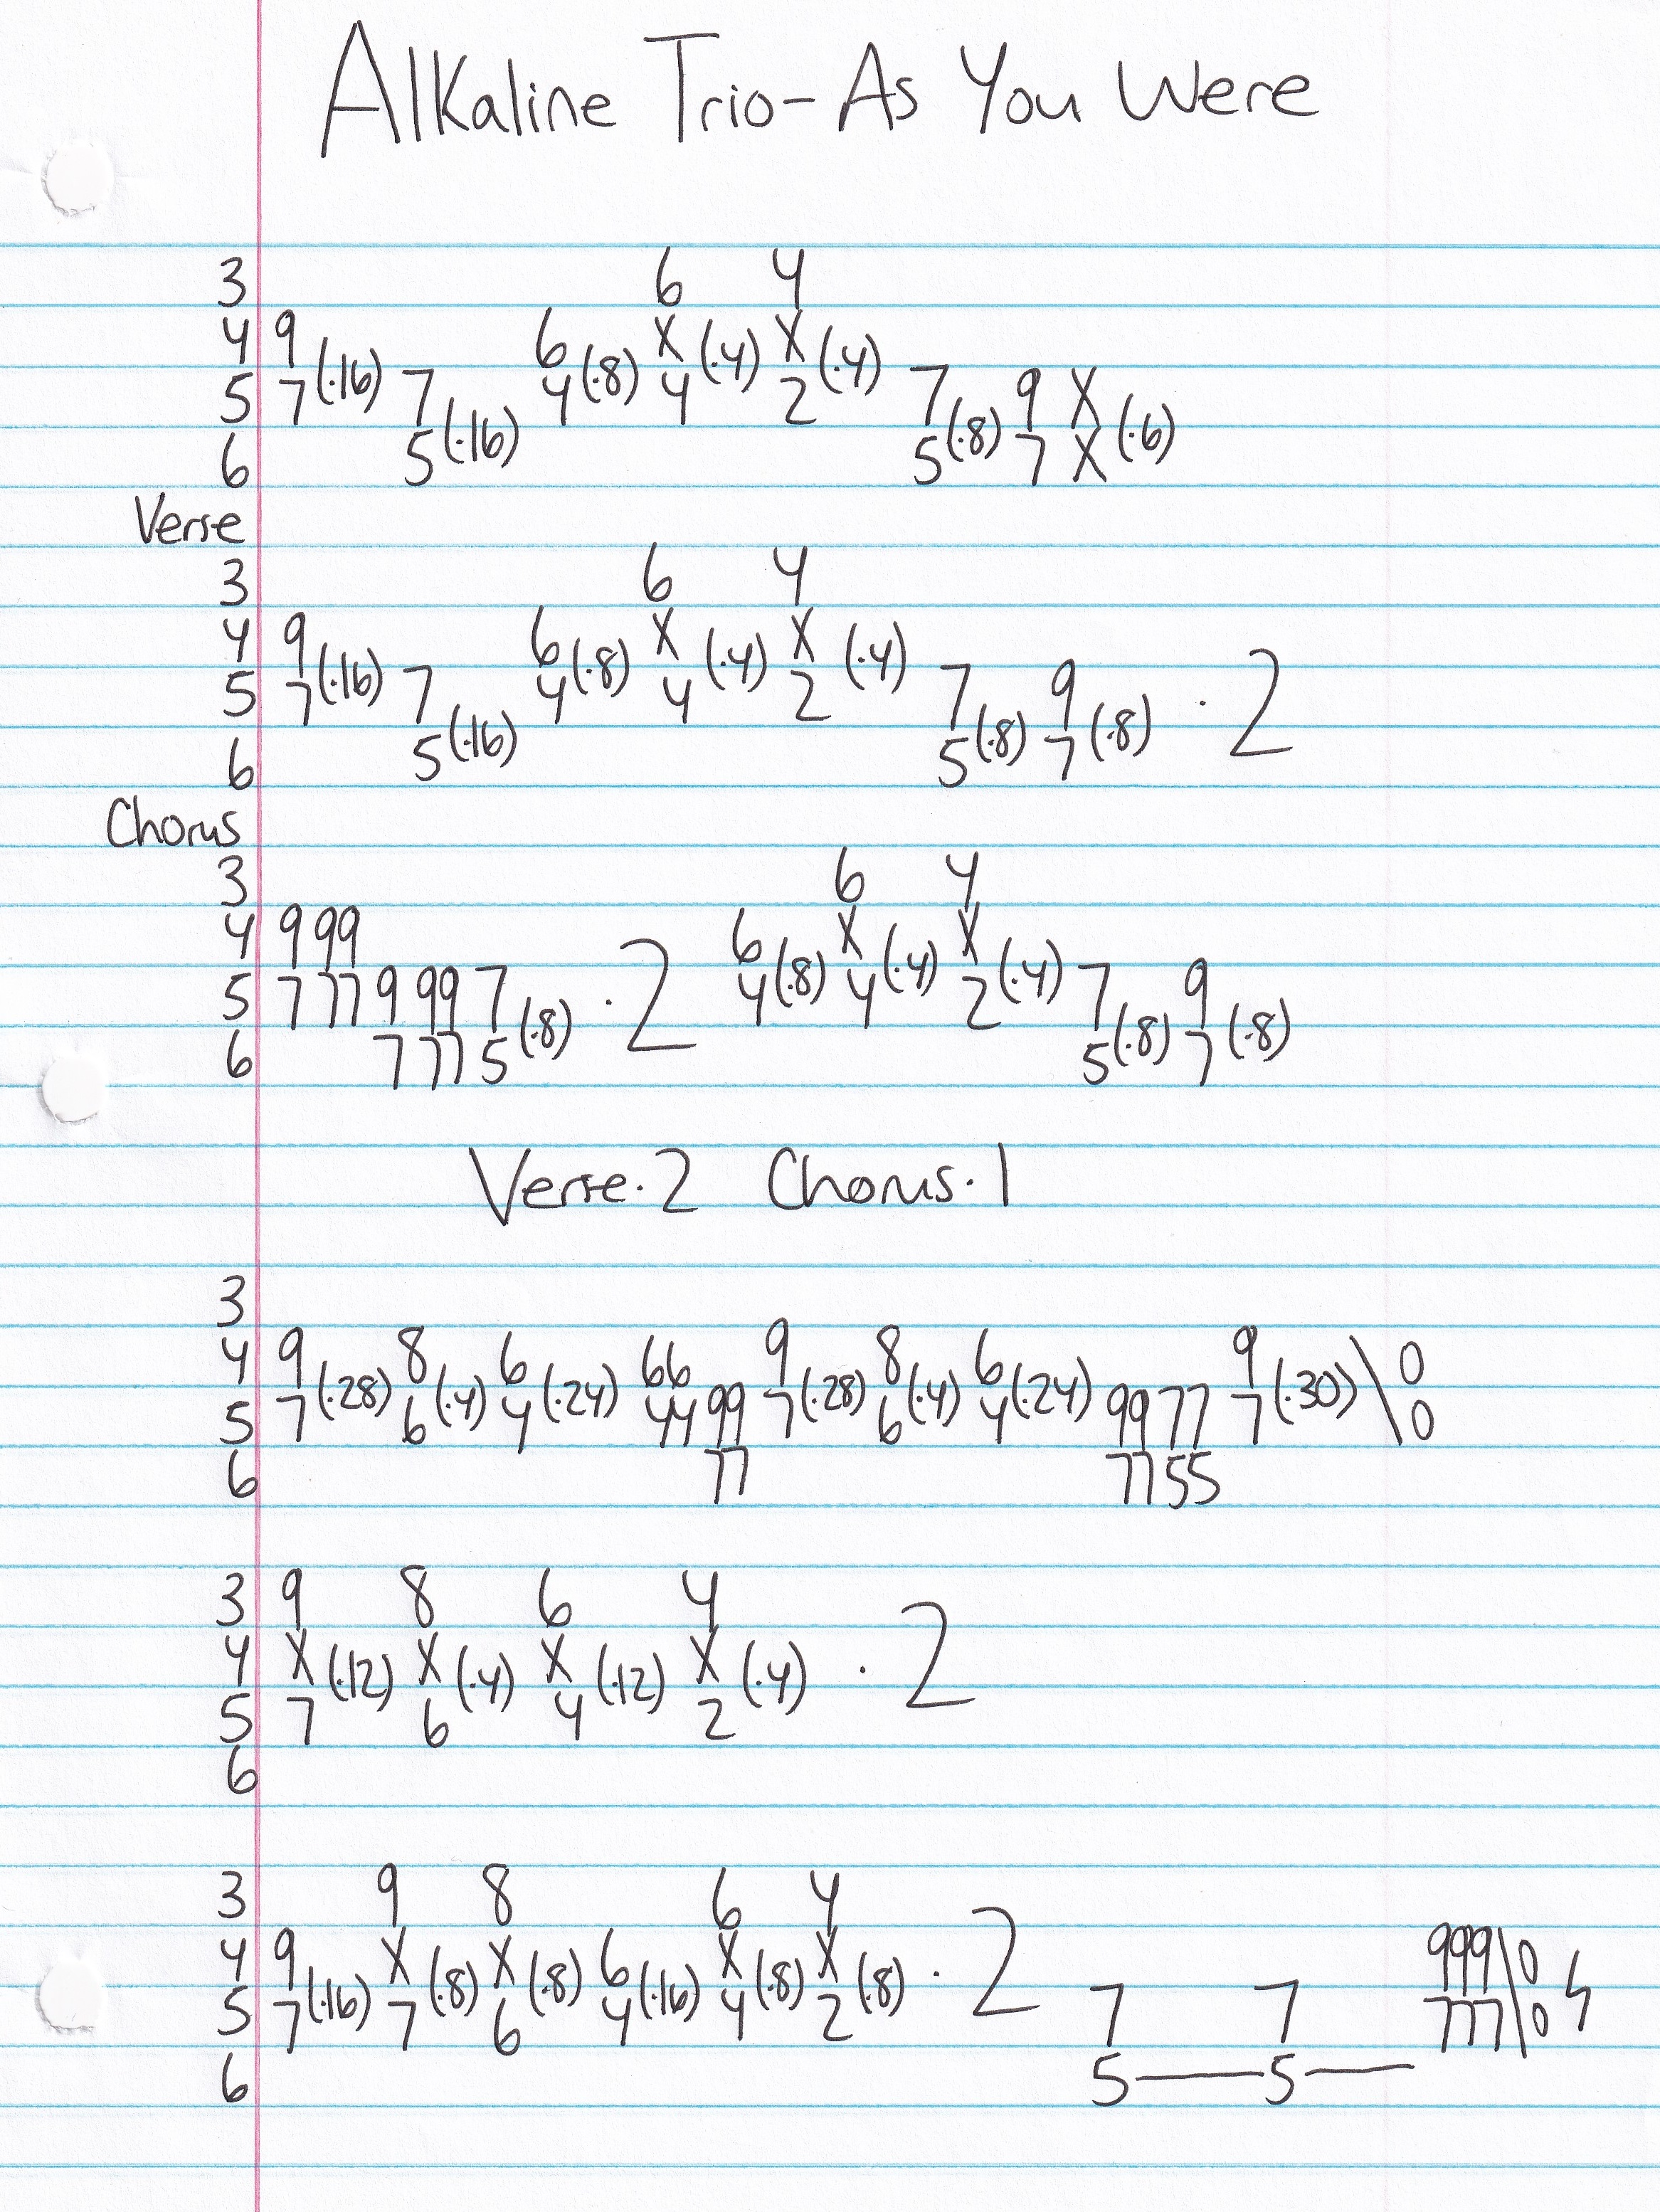 Alkaline Trio - As You Were
3 6 4
4 9 6 X X
5 7 (·16) 7 4 (·8) 4 (·4) 2 (·4) 7 9 X
6 5 (·16) 5 (·8) 7 X (·6)
Verse
3 6 4
4 9 6 X X
5 7 (·16) 7 4 (·8) 4 (·4) 2 (·4) 7 9 · 2
6 5 (·16) 5 (·8) 7 (·8)
Chorus
3 6 4
4 9 99 6 X X
5 7 77 9 99 7 · 2 4 (·8) 4 (·4) 2 (·4) 7 9
6 7 77 5 (·8) 5 (·8) 7 (·8)
Verse·2 Chorus·1
3
4 9 8 6 66 9 8 6 9 \ 0
5 7 (·28) 6 (·4) 4 (·24) 44 99 7 (·28) 6 (·4) 4 (·24) 99 77 7 (·30) \ 0
6 77 77 55
3 9 8 6 4
4 X X X X
5 7 (·12) 6 (·4) 4 (·12) 2 (·4) · 2
6
3 9 8 6 4
4 9 X X 6 X X 999 \ 0
5 7 (·16) 7 (·8) 6 (·8) 4 (·16) 4 (·8) 2 (·8) · 2 7 7 777 \ 0
6 5 — 5 —